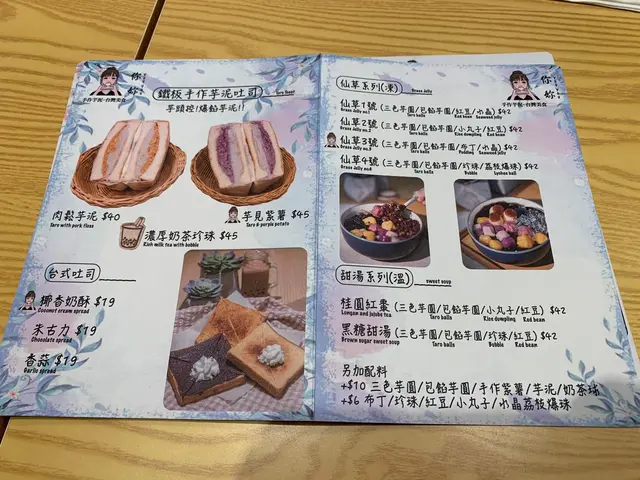 你好
手作芋泥·台灣美食
鐵板手作芋泥吐司
Taro Toast
芋頭控!爆餡芋泥!!
肉鬆芋泥 $40
Taro with pork floss
芋見紫薯 $45
Taro & purple potato
濃厚奶茶珍珠 $45
Rich milk tea with bubble
台式吐司
椰香奶酥 $19
Coconut cream spread
朱古力 $19
Chocolate spread
香蒜 $19
Garlic spread
仙草系列(凍)
Grass Jelly
手作芋泥·台灣美食
仙草1號 (三色芋圓/包餡芋圓/紅豆/水晶) $42
Grass Jelly no.1 Taro balls Red bean Seaweed jelly
仙草2號 (三色芋圓/包餡芋圓/小丸子/紅豆) $42
Grass Jelly no.2 Taro balls Rice dumpling Red bean
仙草3號 (三色芋圓/包餡芋圓/布丁/水晶) $42
Grass Jelly no.3 Taro balls Pudding Seaweed jelly
仙草4號 (三色芋圓/包餡芋圓/珍珠/荔枝爆珠) $42
Grass Jelly no.4 Taro balls Bubble Lychee ball
甜湯系列(溫)
sweet soup
桂圓紅棗 (三色芋圓/包餡芋圓/小丸子/紅豆) $42
Longan and jujube tea Taro balls Rice dumpling Red bean
黑糖甜湯 (三色芋圓/包餡芋圓/珍珠/紅豆) $42
Brown sugar sweet soup Taro balls Bubble Red bean
另加配料
+$10 三色芋圓/包餡芋圓/手作紫薯/芋泥/奶茶球
+$6 布丁/珍珠/紅豆/小丸子/水晶荔枝爆珠